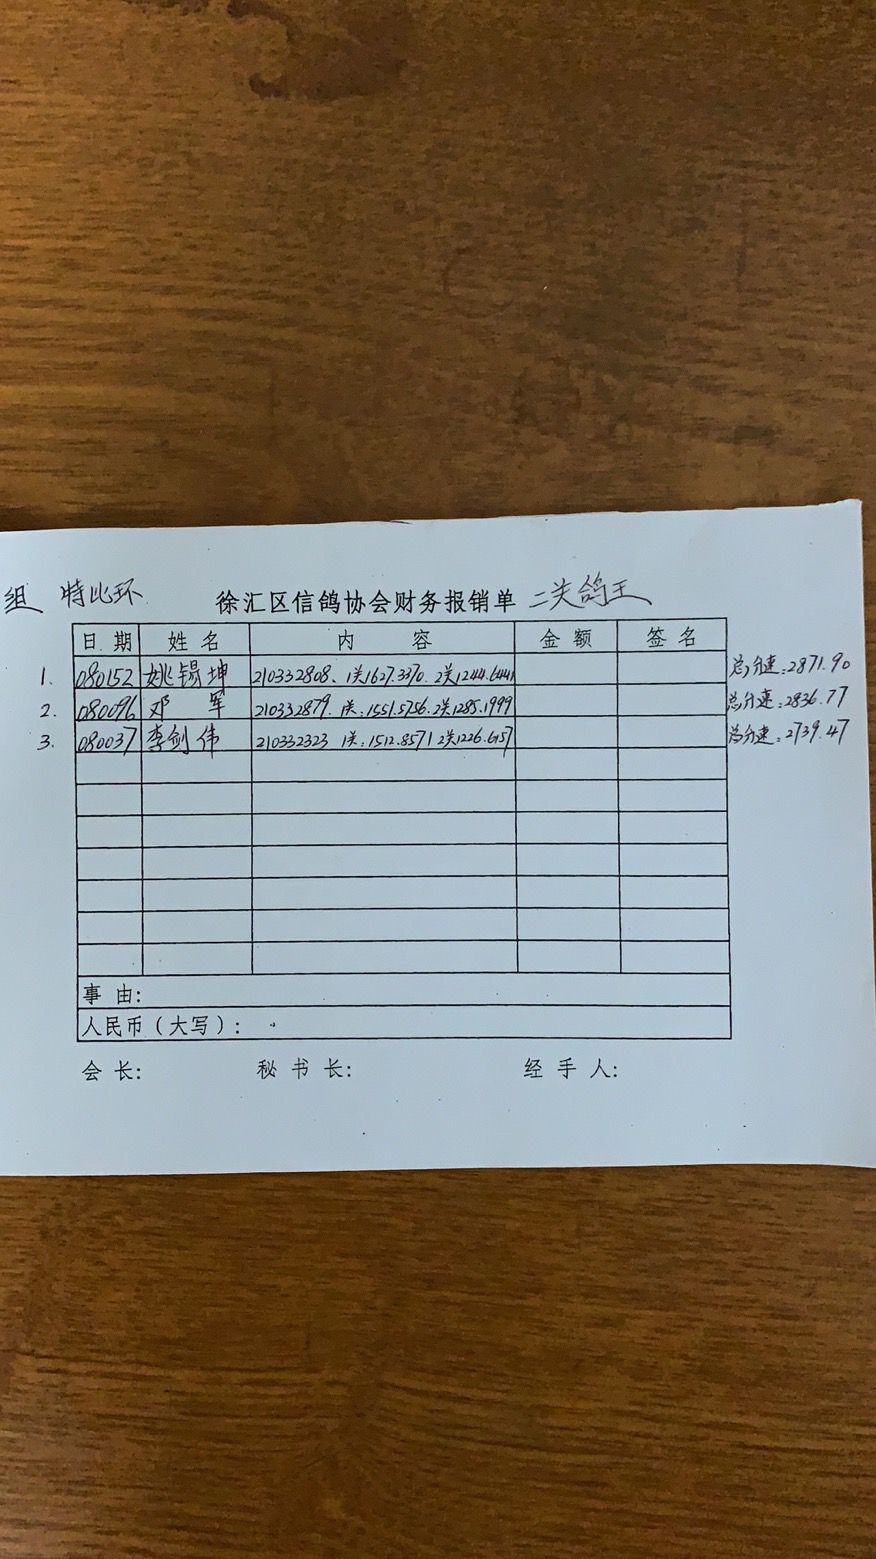 组 特比环 徐汇区信鸽协会财务报销单 二关鸽王
日期 姓名 内容 金额 签名
1. 080152 姚锡坤 210332808、1关1627.3370. 2关1244.6441 总分速:2871.90
2. 080096 邓军 210332879. 1关:1551.5756. 2关1285.1999 总分速:2836.77
3. 080037 李剑伟 210332323 1关:1512.8571 2关1226.6157 总分速:2739.47
事由:
人民币(大写):
会长: 秘书长: 经手人: